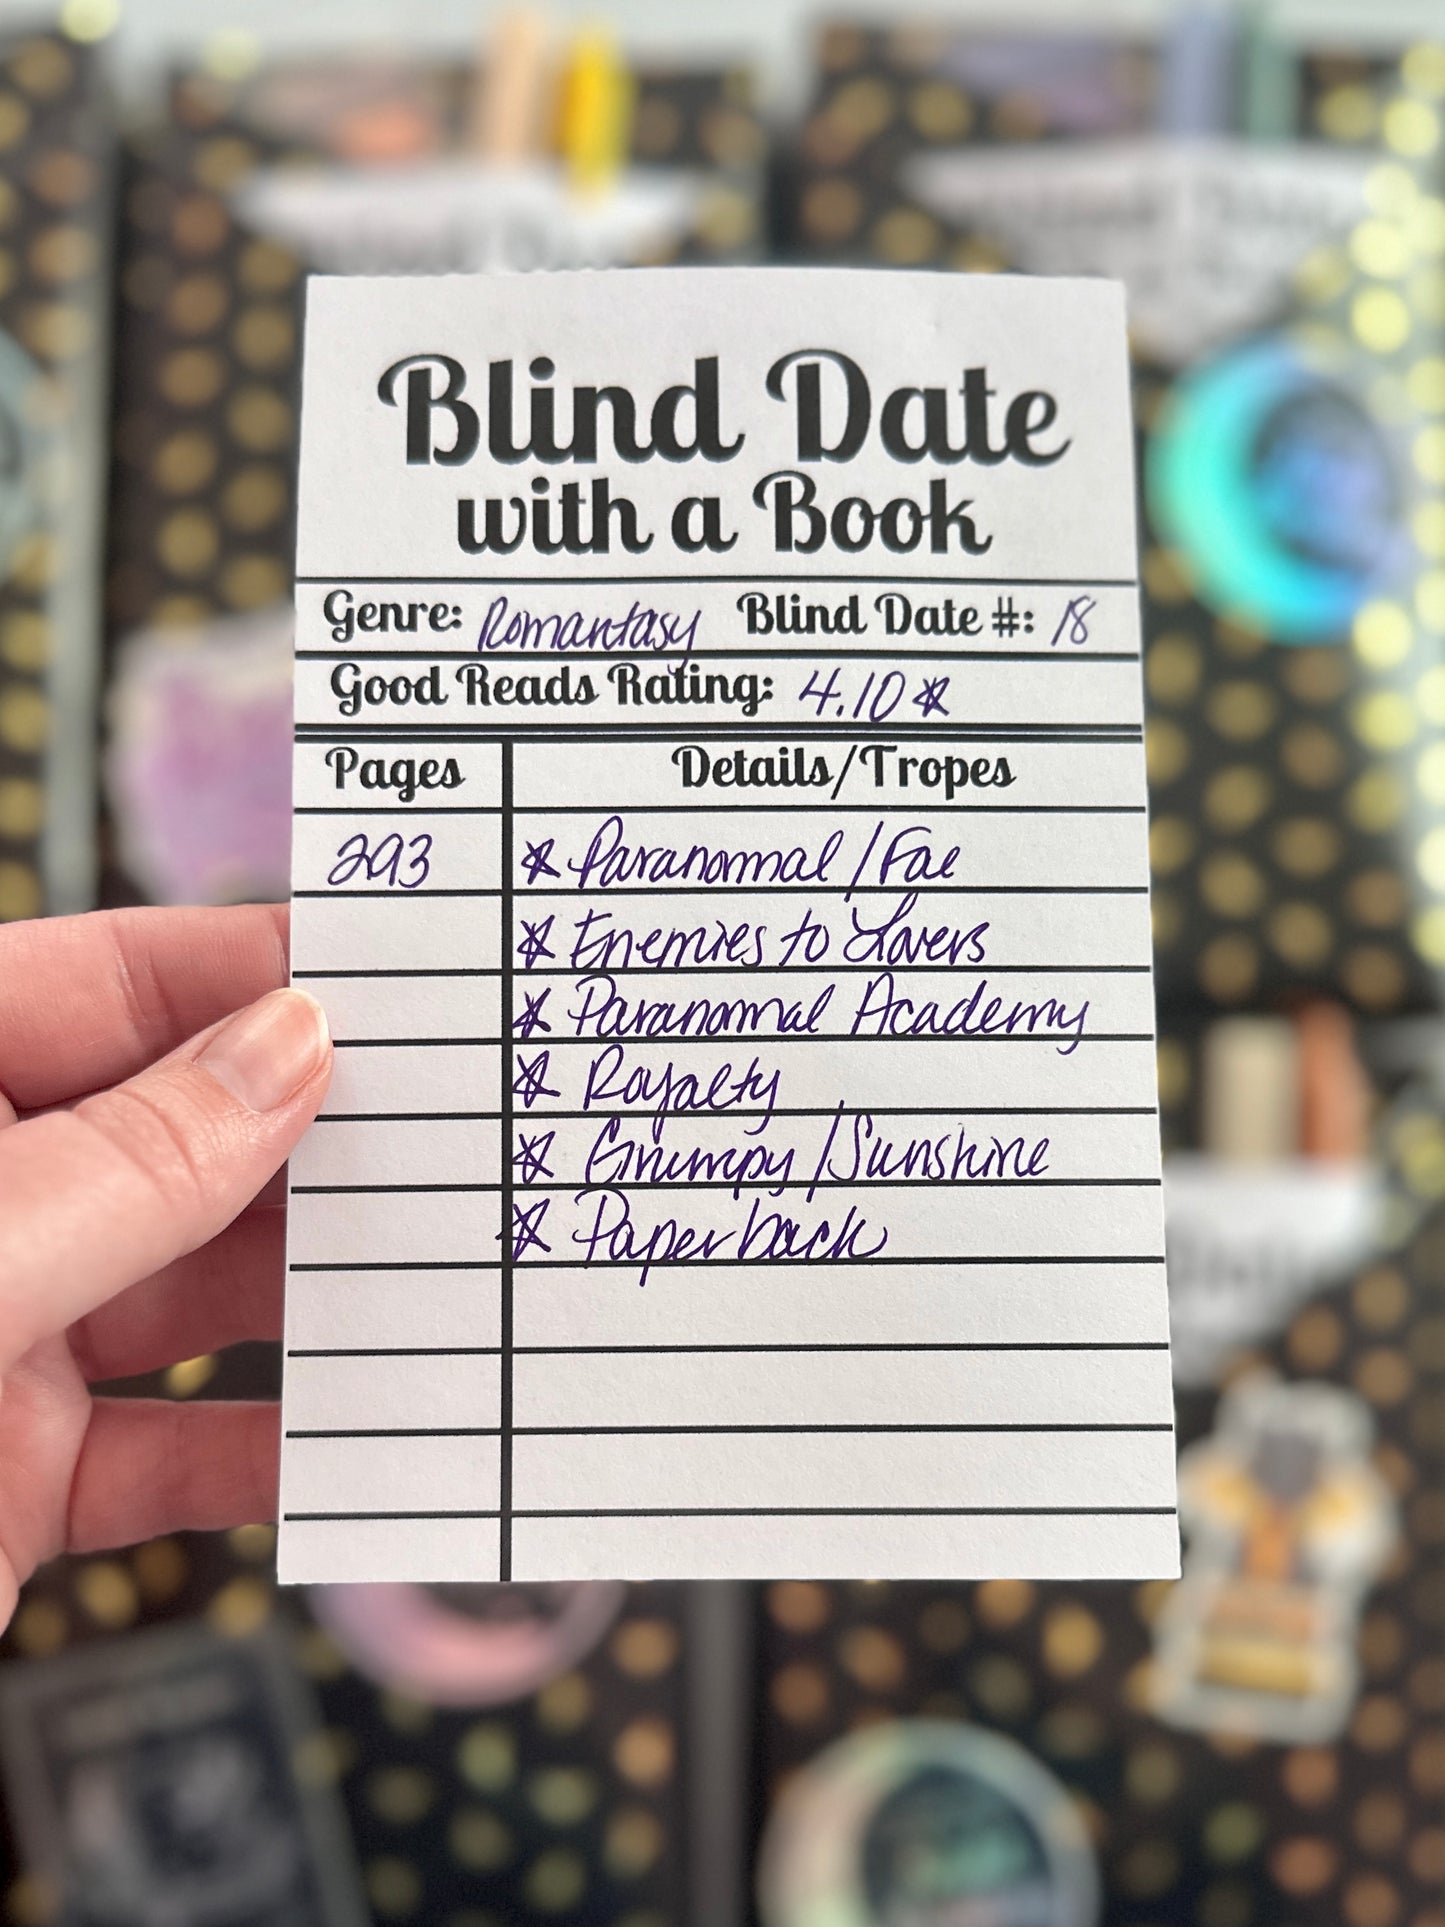 Blind Date
with a Book
Genre: Romantasy Blind Date #: 18
Good Reads Rating: 4.10☆
Pages Details/Tropes
293 ☆ Paranormal /Fae
☆ Enemies to Lovers
☆ Paranormal Academy
☆ Royalty
☆ Grumpy /Sunshine
☆ Paperback